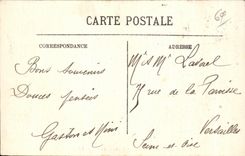 CARTE POSTALE
CORRESPONDANCE
ADRESSE
Bons souvenirs
Douces pensées
Gaston et Mimi
Mr & Me
rue de la Paroisse
Versailles
Seine et Oise